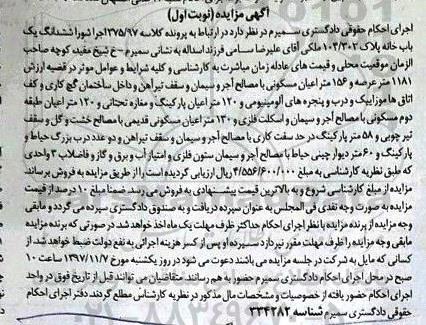 آگهی مزایده (نوبت اول)
اجرای احکام حقوقی دادگستری سمیرم در نظر دارد در ارتباط به پرونده کلاسه ۱۳۷۵/۹۷ اجرا شورا ششدانگ یک
باب خانه پلاک ۱۰۴/۳۰۲ ملکی آقای علیرضا سامی فرزند اسداله به نشانی سمیرم – خ شیخ مفید کوچه صاحب
الزمان موقعیت محلی و قیمت های عادله زمان مباشرت به کارشناسی و کلیه شرایط و عوامل موثر در قضیه ارزش
۱۱۸۱ متر عرصه و ۱۵۶ متر اعیان مسکونی با مصالح آجر و سیمان و سقف تیراهن و داخل ساختمان گچ کاری و کف
اتاق ها موزاییک و درب و پنجره های آلومینیومی و ۱۲۰ متر اعیان پارکینگ و مغازه تحتانی و ۱۲۰ متر اعیان طبقه
دوم مسکونی با مصالح آجر و سیمان و اسکلت فلزی و ۱۳۰ متر اعیان مسکونی قدیمی با مصالح خشت و گل و سقف
تیر چوبی و ۵۸ متر پارکینگ در حد سفت کاری با مصالح آجر و سیمان و سقف تیراهن و دو عدد درب بزرگ حیاط و
پارکینگ و ۶۰ متر دیوار چینی حیاط با مصالح آجر و سیمان ستون فلزی و امتیاز آب و برق و گاز و فاضلاب ۳ واحدی
که طبق نظریه کارشناسی به مبلغ ۴/۵۵۶/۶۰۰/۰۰۰ ریال ارزیابی گردیده است را از طریق مزایده به فروش برساند.
مزایده از مبلغ کارشناسی شروع و به بالاترین قیمت پیشنهادی به فروش می رسد. ضمنا مبلغ ۱۰ درصد از قیمت
مزایده به صورت وجه نقدی فی المجلس به عنوان سپرده دریافت و به صندوق دادگستری سپرده می گردد و مابقی
وجه مزایده از برنده مزایده با نظر اجرای احکام حداکثر ظرف مهلت یک ماه اخذ خواهد شد. در صورتی که برنده مزایده
مابقی وجه مزایده را ظرف مهلت مقرر نپردازد سپرده او پس از کسر هزینه اجرائی به نفع دولت ضبط خواهد شد. از
کسانی که مایل به شرکت در جلسه مزایده می باشند دعوت می شود در روز یکشنبه مورخ ۱۳۹۷/۱۱/۷ ساعت ۱۰
صبح در محل اجرای احکام دادگستری سمیرم حضور به هم رسانند. متقاضیان می توانند قبل از تاریخ فوق در واحد
اجرای احکام حضور یافته از خصوصیات و مشخصات مال مذکور در نظریه کارشناس مطلع گردند. دفتر اجرای احکام
حقوقی دادگستری سمیرم شناسه ۳۳۴۲۸۲